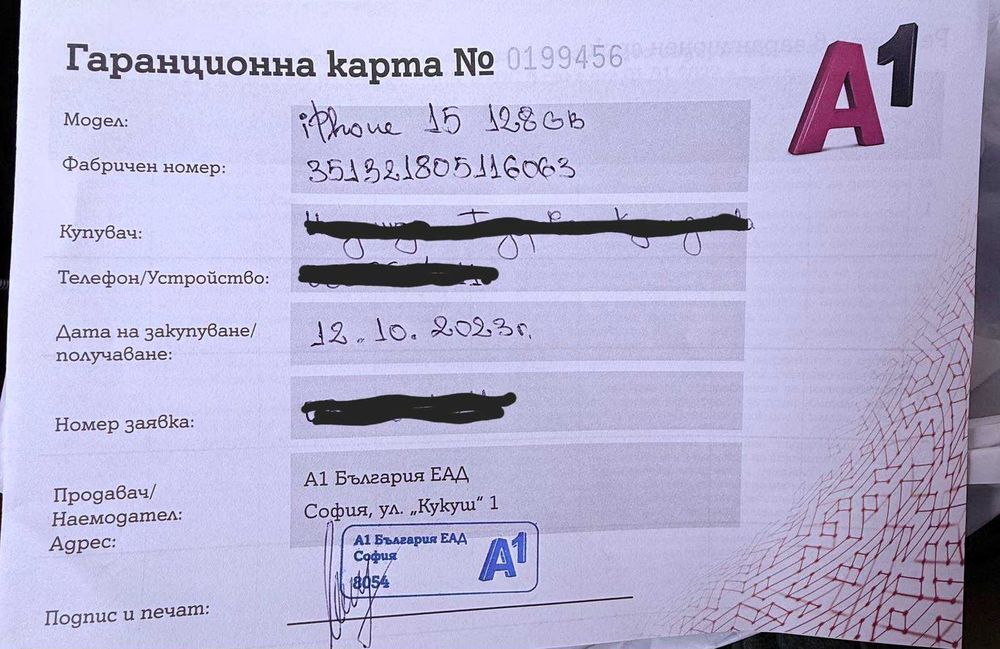 Гаранционна карта № 0199456
A1
Модел: iPhone 15 128GB
Фабричен номер: 351321805116063
Купувач:
Телефон/Устройство:
Дата на закупуване/
получаване: 12.10.2023г.
Номер заявка:
Продавач/
Наемодател:
Адрес:
А1 България ЕАД
София, ул. „Кукуш“ 1
А1 България ЕАД
София
8054
A1
Подпис и печат: